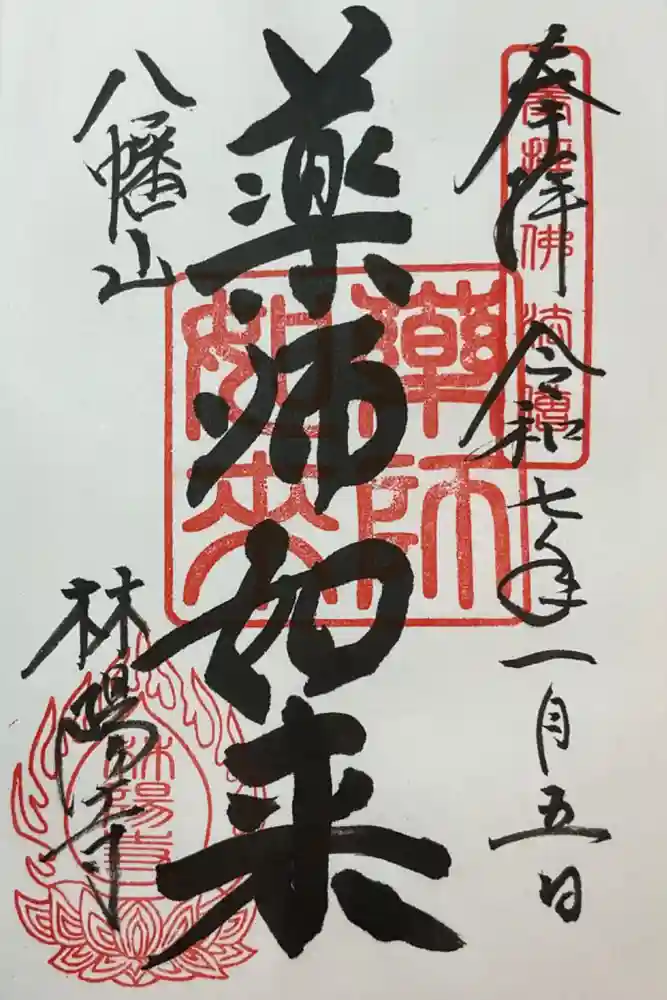 奉拝 令和七年一月五日
奉拝佛法僧
薬師如来
藥師
如来
八幡山
林陽寺
林陽寺